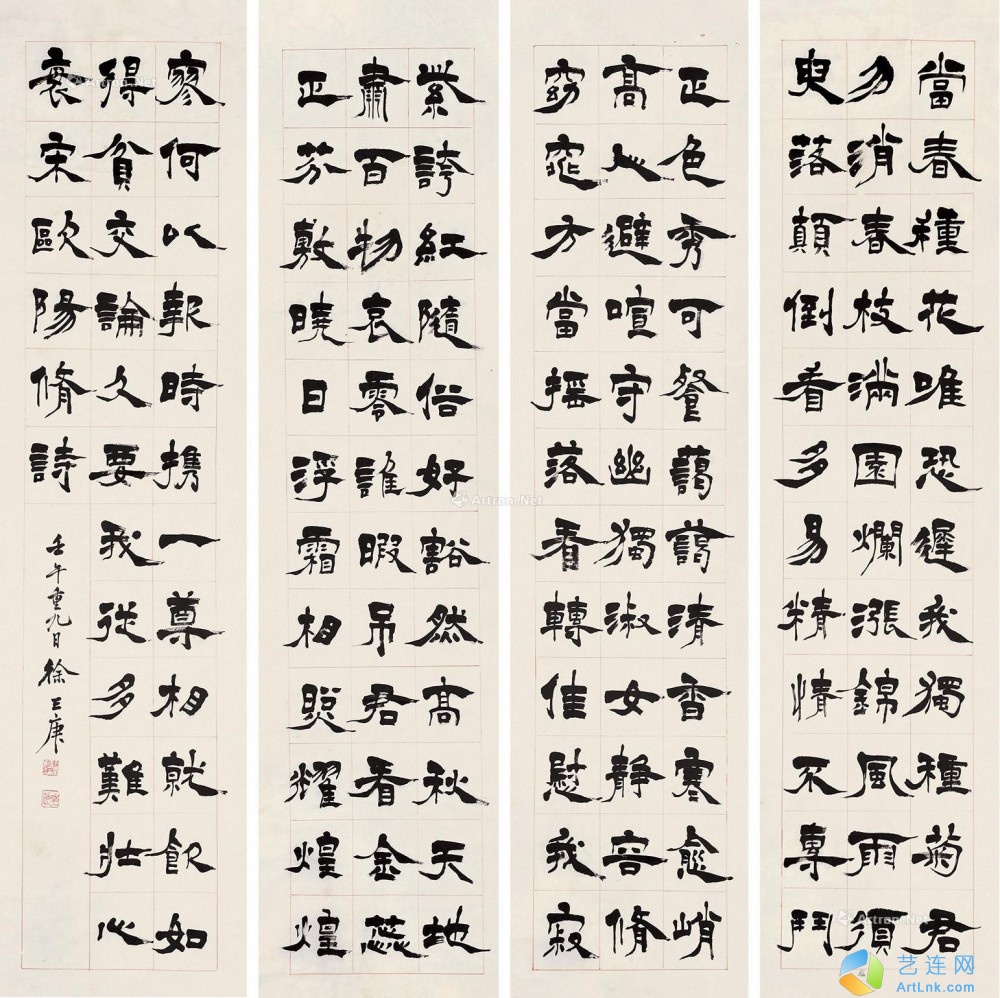 當春種花唯恐遲我獨種菊君
勿消春枝滿園爛漲錦風雨須
臾落顛倒看多易精情不專鬥
正色秀可餐藹藹清香寒愈峭
高人避喧守幽獨淑女靜容脩
窈窕方當搖落看轉佳慰我寂
紫誇紅隨俗好豁然高秋天地
肅百物哀零誰暇吊君看金蕊
正芬敷曉日浮霜相照耀煌煌
寥何以報時携一尊相就飲如
得貧交論久要我從多難壯心
衰宋歐陽脩詩
壬午重九日徐三庚
Artron.Net
Artron.Net
Artron.Net
艺连网
ArtLnk.com